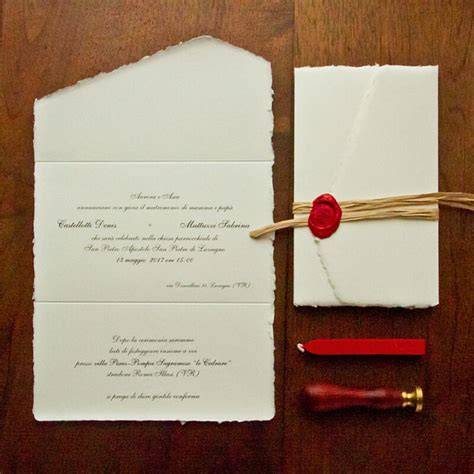 Aurora e Asia
annunciano con gioia il matrimonio di mamma e papà
Castellotti Denis e Mattuzzi Sabrina
che sarà celebrato nella chiesa parrocchiale di
San Pietro Apostolo San Pietro di Lavagno
13 maggio 2017 ore 15:00
via 11, Lavagno (VR)
Dopo la cerimonia saremmo
lieti di festeggiare insieme a voi
presso villa Paris-Pompea Sagramoso "le Cedrare"
stradoni Roma Illasi (VR)
si prega di dare gentile conferma